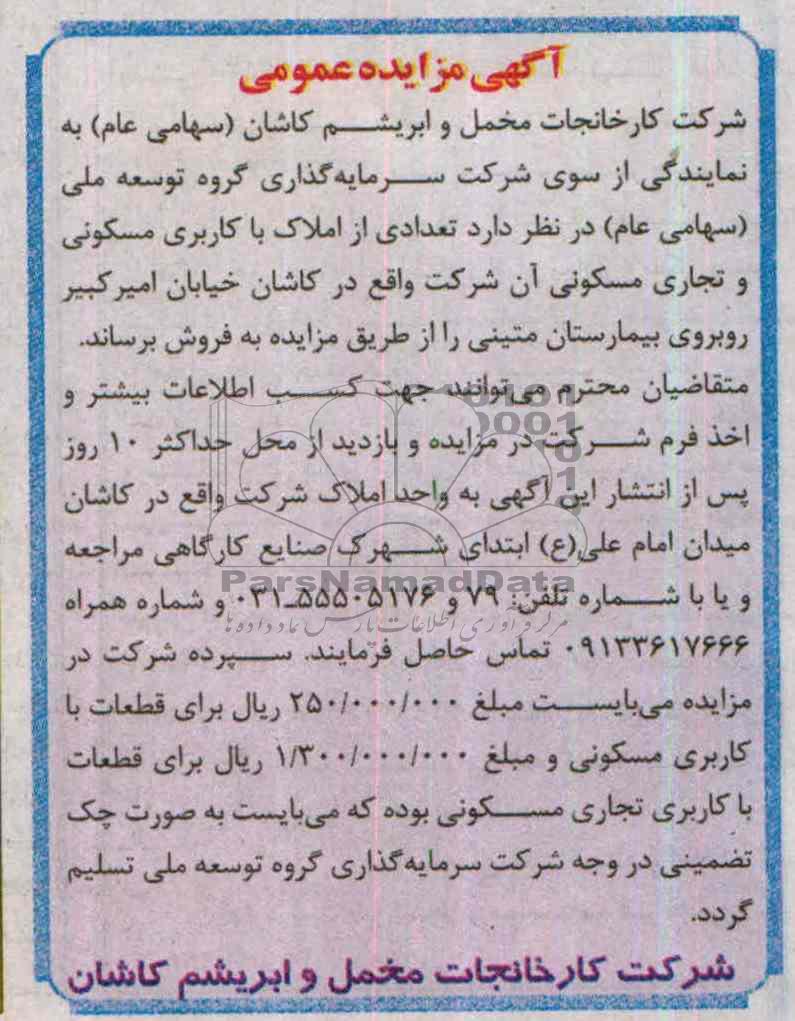 آگهی مزایده عمومی
شرکت کارخانجات مخمل و ابریشم کاشان (سهامی عام) به
نمایندگی از سوی شرکت سرمایه‌گذاری گروه توسعه ملی
(سهامی عام) در نظر دارد تعدادی از املاک با کاربری مسکونی
و تجاری مسکونی آن شرکت واقع در کاشان خیابان امیرکبیر
روبروی بیمارستان متینی را از طریق مزایده به فروش برساند.
متقاضیان محترم می‌توانند جهت کسب اطلاعات بیشتر و
اخذ فرم شرکت در مزایده و بازدید از محل حداکثر ۱۰ روز
پس از انتشار این آگهی به واحد املاک شرکت واقع در کاشان
میدان امام علی(ع) ابتدای شهرک صنایع کارگاهی مراجعه
ParsNamadData
و یا با شماره تلفن: ۷۹ و ۵۵۵۰۵۱۷۶-۰۳۱ و شماره همراه
مرکز فرآوری اطلاعات پارس نماد داده‌ها
۰۹۱۳۳۶۱۷۶۶۶ تماس حاصل فرمایند. سپرده شرکت در
مزایده می‌بایست مبلغ ۲۵۰/۰۰۰/۰۰۰ ریال برای قطعات با
کاربری مسکونی و مبلغ ۱/۳۰۰/۰۰۰/۰۰۰ ریال برای قطعات
با کاربری تجاری مسکونی بوده که می‌بایست به صورت چک
تضمینی در وجه شرکت سرمایه‌گذاری گروه توسعه ملی تسلیم
گردد.
شرکت کارخانجات مخمل و ابریشم کاشان